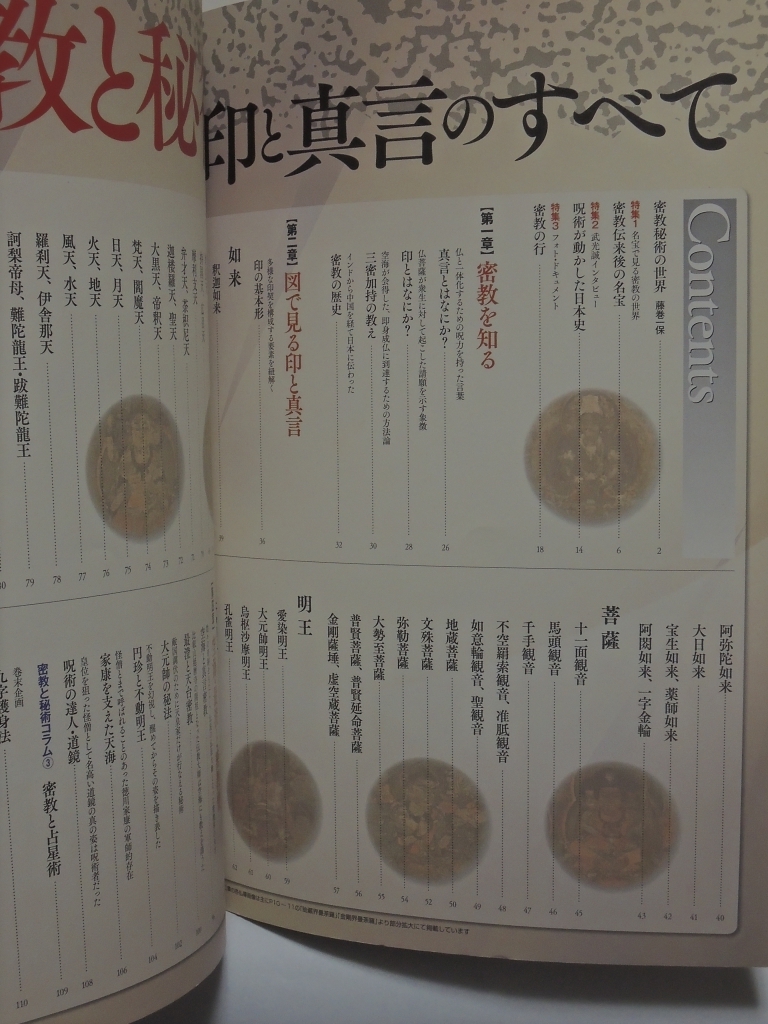 教と秘
印と真言のすべて
Contents
密教秘術の世界 藤巻一保
2
特集1 名宝で見る密教の世界
密教伝来後の名宝
6
特集2 武光誠インタビュー
呪術が動かした日本史
14
特集3 フォト・ドキュメント
密教の行
18
【第一章】密教を知る
仏と一体化するための呪力を持った言葉
真言とはなにか?
26
仏菩薩が衆生に対して起こした請願を示す象徴
印とはなにか?
28
空海が会得した、即身成仏に到達するための方法論
三密加持の教え
30
インドから中国を経て日本に伝わった
密教の歴史
32
【第二章】図で見る印と真言
多様な印契を構成する要素を紐解く
印の基本形
36
如来
釈迦如来
39
阿弥陀如来
40
大日如来
41
宝生如来、薬師如来
42
阿閦如来、一字金輪
43
菩薩
十一面観音
45
馬頭観音
46
千手観音
47
不空羂索観音、准胝観音
48
如意輪観音、聖観音
49
地蔵菩薩
50
文殊菩薩
52
弥勒菩薩
54
大勢至菩薩
55
普賢菩薩、普賢延命菩薩
56
金剛薩埵、虚空蔵菩薩
57
明王
愛染明王
59
大元帥明王
60
烏枢沙摩明王
61
孔雀明王
62
弁才天、荼枳尼天
72
迦楼羅天、聖天
73
大黒天、帝釈天
74
梵天、閻魔天
75
日天、月天
76
火天、地天
77
風天、水天
78
羅刹天、伊舎那天
79
訶梨帝母、難陀龍王・跋難陀龍王
80
最澄と天台密教
大元帥の秘法
102
不動明王を幻視し、醒めてからその姿を描き表した
円珍と不動明王
104
怪僧とまで呼ばれることのあった徳川家康の軍師的存在
家康を支えた天海
106
皇位を狙った怪僧として名高い道鏡の真の姿は呪術者だった
呪術の達人・道鏡
108
密教と秘術コラム③ 密教と占星術
109
巻末企画
九字護身法
110